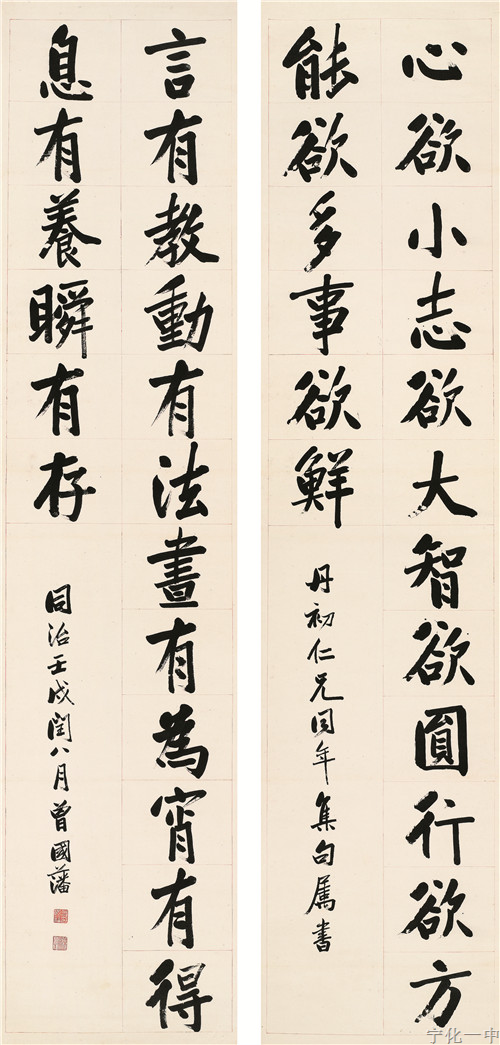 心欲小志欲大智欲圓行欲方
能欲多事欲鮮
丹初仁兄同年集句屬書
言有教動有法晝有為宵有得
息有養瞬有存
同治壬戌閏八月曾國藩
宁化一中